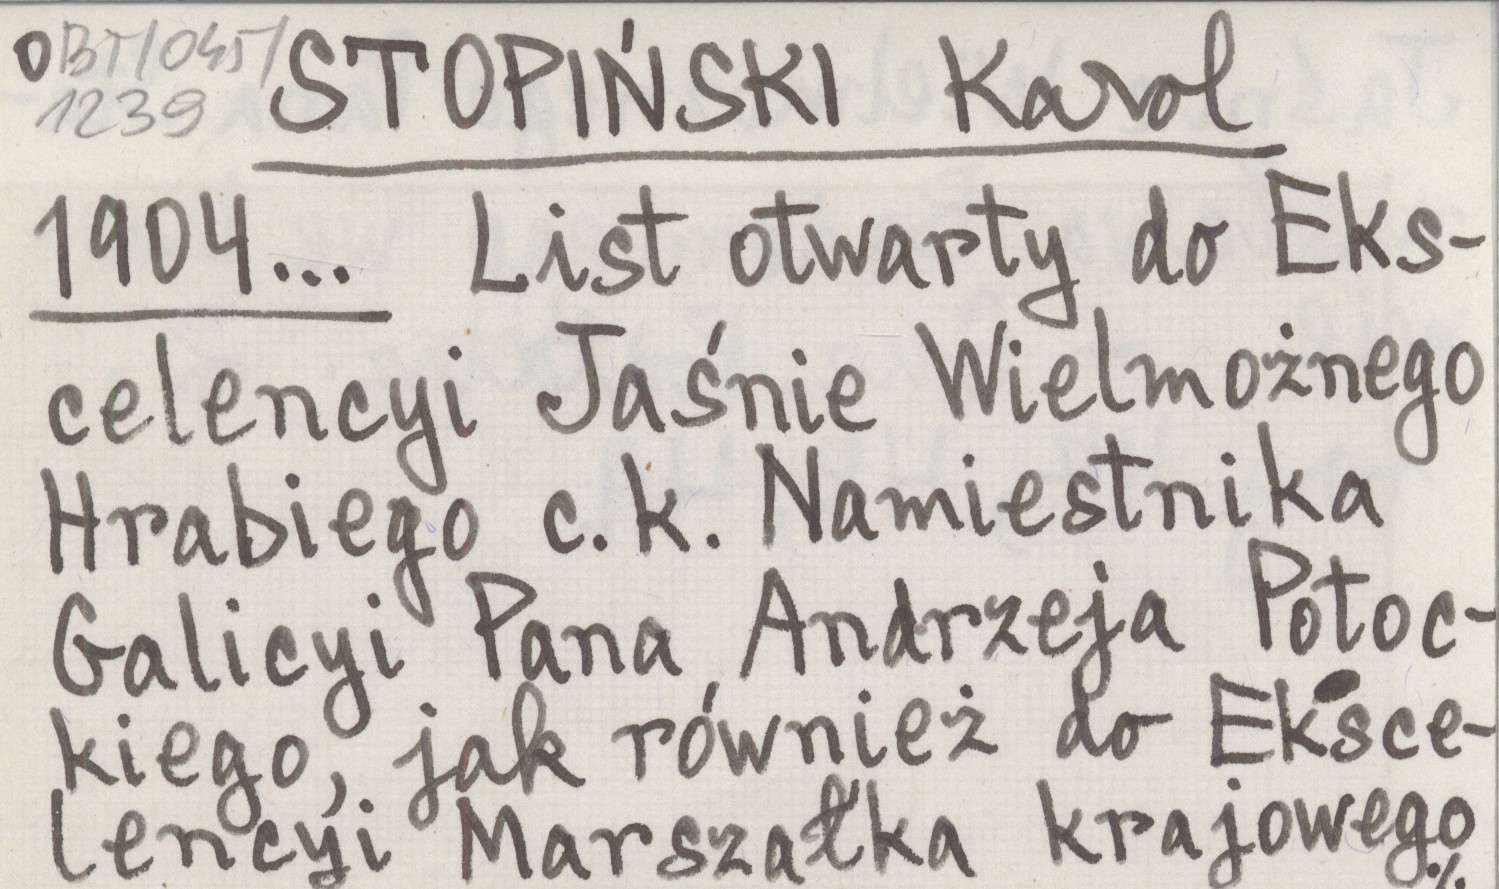 OBT/045/
1239
STOPIŃSKI Karol
1904... List otwarty do Eks-
celencyi Jaśnie Wielmożnego
Hrabiego c.k. Namiestnika
Galicyi Pana Andrzeja Potoc-
kiego, jak również do Eksce-
lencyi Marszałka krajowego
./.